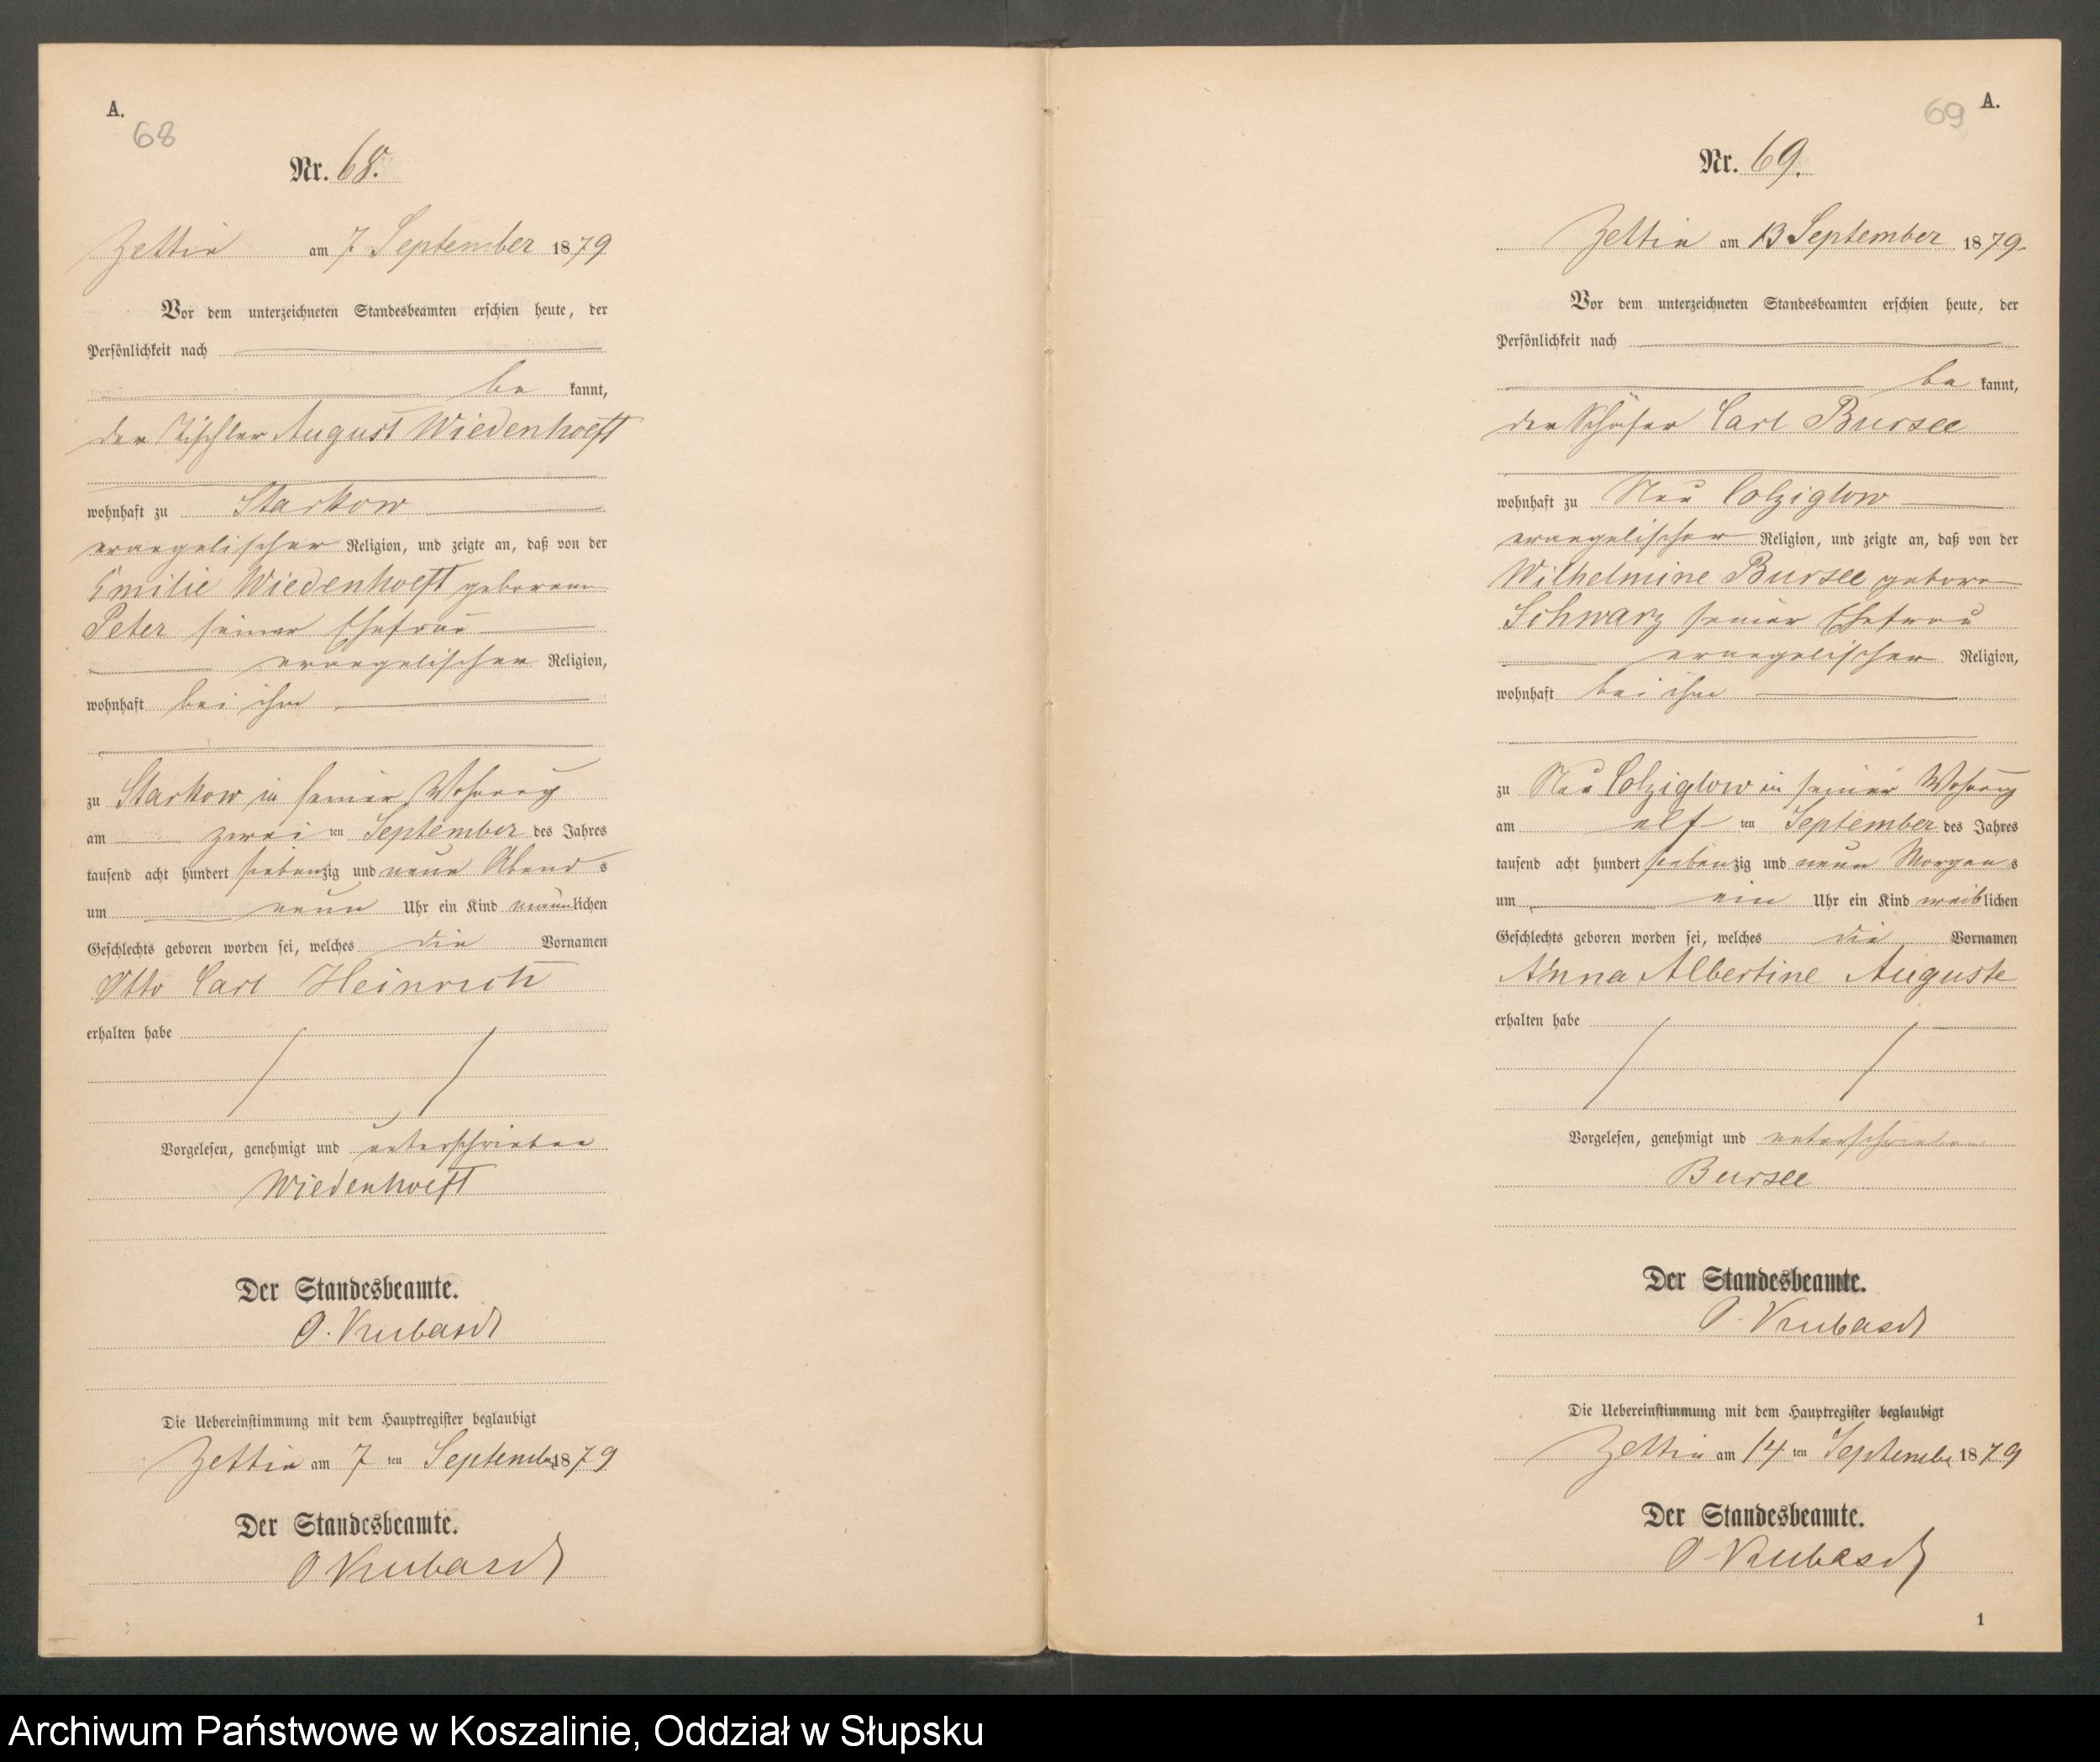 A.
68
Nr. 68.
Zettin am 7 September 1879
Vor dem unterzeichneten Standesbeamten erschien heute, der
Persönlichkeit nach
be kannt,
der Tischler August Wiedenhoeft
wohnhaft zu Starkow
evangelischer Religion, und zeigte an, daß von der
Emilie Wiedenhoeft geborenen
Peter seiner Ehefrau
evangelischer Religion,
wohnhaft bei ihm
zu Starkow in seiner Wohnung
am zwei ten September des Jahres
tausend acht hundert siebenzig und neun Abend s
um neun Uhr ein Kind männlichen
Geschlechts geboren worden sei, welches die Vornamen
Otto Carl Heinrich
erhalten habe
Vorgelesen, genehmigt und unterschrieben
Wiedenhoeft
Der Standesbeamte.
O. Kubasch
Die Uebereinstimmung mit dem Hauptregister beglaubigt
Zettin am 7 ten September 1879
Der Standesbeamte.
O Kubasch
69 A.
Nr. 69.
Zettin am 13 September 1879.
Vor dem unterzeichneten Standesbeamten erschien heute, der
Persönlichkeit nach
be kannt,
der Schäfer Carl Bursee
wohnhaft zu Neu Colziglow
evangelischer Religion, und zeigte an, daß von der
Wilhelmine Bursee geborene
Schwarz seiner Ehefrau
evangelischer Religion,
wohnhaft bei ihm
zu Neu Colziglow in seiner Wohnung
am elf ten September des Jahres
tausend acht hundert siebenzig und neun Morgen s
um ein Uhr ein Kind weiblichen
Geschlechts geboren worden sei, welches die Vornamen
Anna Albertine Auguste
erhalten habe
Vorgelesen, genehmigt und unterschrieben
Bursee
Der Standesbeamte.
O. Kubasch
Die Uebereinstimmung mit dem Hauptregister beglaubigt
Zettin am 14 ten September 1879
Der Standesbeamte.
O. Kubasch
1
Archiwum Państwowe w Koszalinie, Oddział w Słupsku